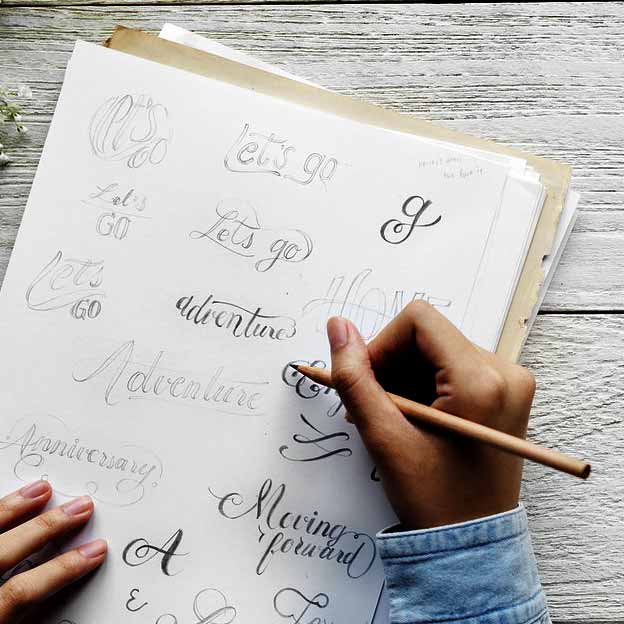 Let's
GO
Let's go
Let's
GO
Lets go
g
Lets
GO
adventure
HOME
Adventure
Anniversary
Moving
forward
A
&